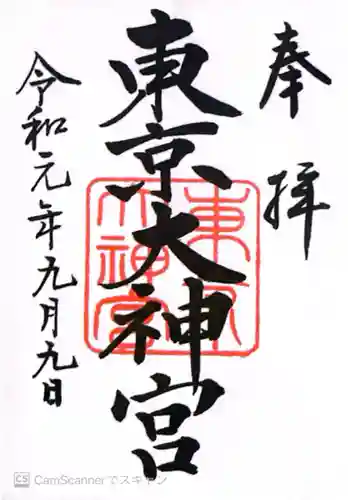 奉拝
東京大神宮
令和元年九月九日
東京大神宮
CS CamScannerでスキャン